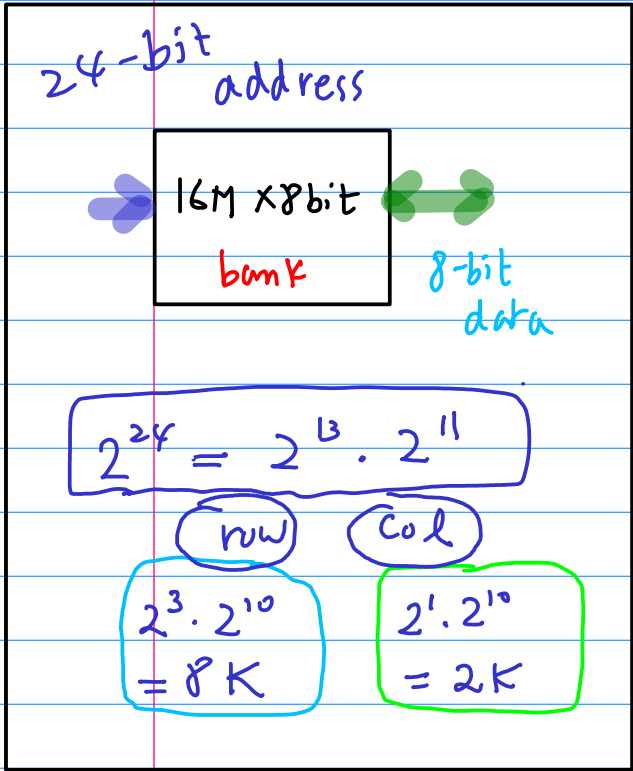 24-bit
address
16M x8bit
bank
8-bit
data
2^24 = 2^13 . 2^11
row Col
2^3 . 2^10 2^1 . 2^10
= 8K = 2K